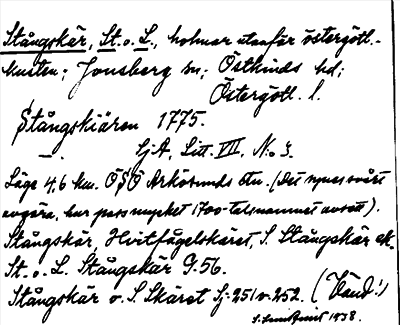 Stångskär, St. o. L., holmar utanför östergötl.-
kusten; Jonsberg sn; Östkinds hd;
Östergötl. l.
Stångskiären 1775.
— SjA, Litt. VII, No 3.
Läge 4,6 km. OSO Arkösunds stn. (Det synes svårt
avgöra, hur pass mycket 1700-talsnamnet avsett).
Stångskär, Hvitfågelskäret, S. Stångskär ek.
St. o. L. Stångskär G. 56.
Stångskär o. S. Skäret Sj: 251 o. 252. (Vänd!)
1938.